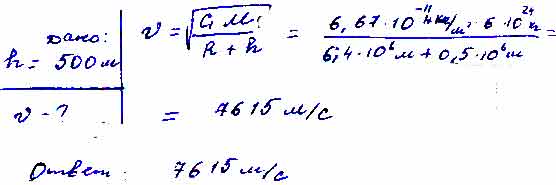 Дано:
h = 500 м
v - ?
v = √(G M / R + h) = 6,67·10⁻¹¹ · 6·10²⁴ / 6,4·10⁶ м + 0,5·10⁶ м =
= 7615 м/с
Ответ: 7615 м/с